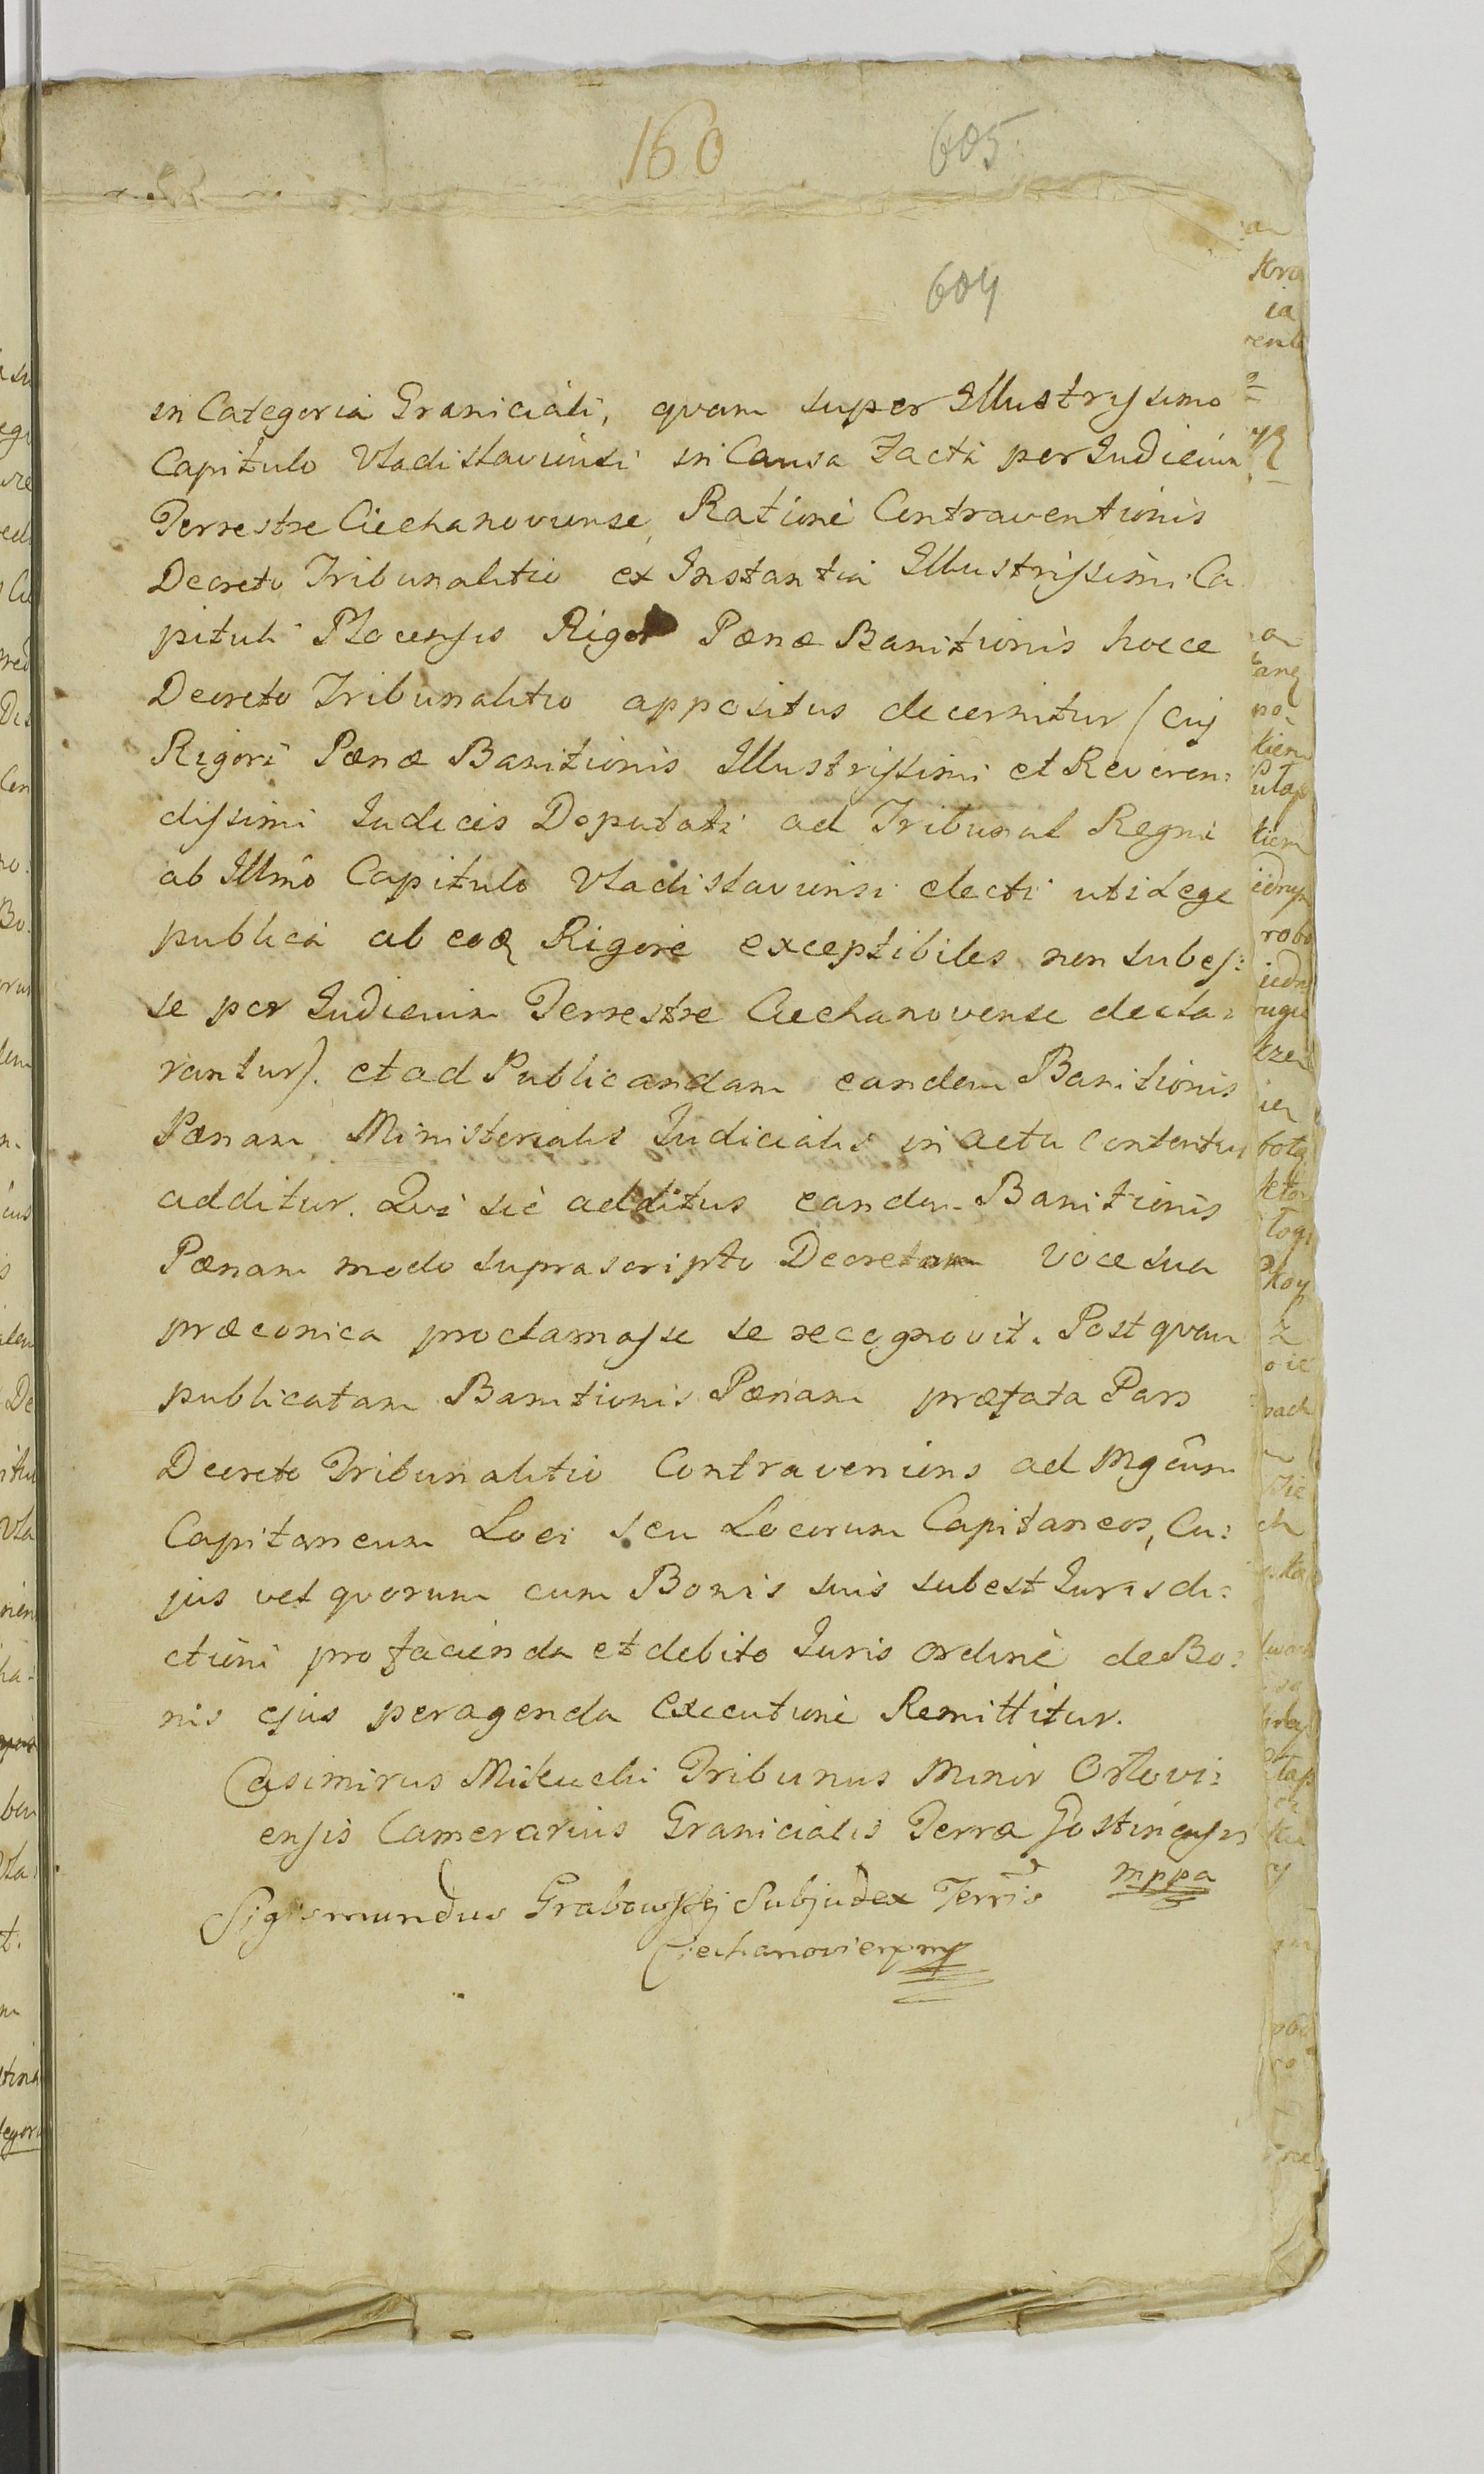 160
605
604
in Categoria Graniciali, quam super Illustrissimo
Capitulo Vladislaviensi in Causa Facti per Iudicium
Terrestre Ciechanoviense, Ratione Contraventionis
Decreto Tribunalitio ex Instantia Illustrissimi Ca
pituli Plocensis Rigor Pænæ Banitionis hocce
Decreto Tribunalitio appositus decernitur /cuj
Rigori Pænæ Banitionis Illustrissimi et Reveren:
dissimi Iudices Deputati ad Tribunal Regni
ab Illmô Capitulo Vladislaviensi electi uti Lege
publica ab eoq Rigore exceptibiles non subes:
se per Iudicium Terrestre Ciechanovense decla:
rantur/. et ad Publicandam eandem Banitionis
Pænam Ministerialis Iudicialis in actu contentus
additur. Qui sic additus eandem Banitionis
Pænam modo suprascripto Decretam voce sua
præconica proclamasse se recognovit. Post quam
publicatam Banitionis Pænam præfata Pars
Decreto Tribunalitio Contraveniens ad Mgcûm
Capitaneum Loci seu Locorum Capitaneos, Cu:
jus vel quorum cum Bonis suis subest Iurisdi:
ctioni pro facienda et debito Iuris ordine de Bo:
nis ejus peragenda Executione Remittitur.
Casimirus Mikuchi Tribunus Minor Orlovi:
ensis Camerarius Granicialis Terræ Gostinensis
mppa
Sigismundus Grabowskj Subjudex Terris
Ciechanovien mp